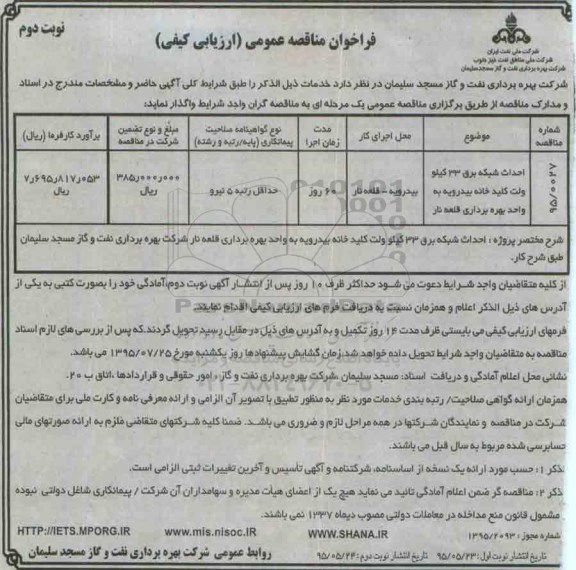 نوبت دوم
فراخوان مناقصه عمومی (ارزیابی کیفی)
شرکت ملی نفت ایران
شرکت ملی مناطق نفت خیز جنوب
شرکت بهره برداری نفت و گاز مسجدسلیمان
شرکت بهره برداری نفت و گاز مسجد سلیمان در نظر دارد خدمات ذیل الذکر را طبق شرایط کلی آگهی حاضر و مشخصات مندرج در اسناد
و مدارک مناقصه از طریق برگزاری مناقصه عمومی یک مرحله ای به مناقصه گران واجد شرایط واگذار نماید:
شماره مناقصه
موضوع
محل اجرای کار
مدت زمان اجرا
نوع گواهینامه صلاحیت پیمانکاری (پایه/رتبه و رشته)
مبلغ و نوع تضمین شرکت در مناقصه
برآورد کارفرما (ریال)
۹۵/۰۰۲۷
احداث شبکه برق ۳۳ کیلو ولت کلید خانه بیدرویه به واحد بهره برداری قلعه نار
بیدرویه - قلعه نار
۶۰ روز
حداقل رتبه ۵ نیرو
۳۸۵ر۰۰۰ر۰۰۰ ریال
۷ر۶۹۵ر۸۱۷ر۰۵۳ ریال
شرح مختصر پروژه : احداث شبکه برق ۳۳ کیلو ولت کلید خانه بیدرویه به واحد بهره برداری قلعه نار شرکت بهره برداری نفت و گاز مسجد سلیمان
طبق شرح کار.
از کلیه متقاضیان واجد شرایط دعوت می شود حداکثر ظرف ۱۰ روز پس از انتشار آگهی نوبت دوم آمادگی خود را بصورت کتبی به یکی از
آدرس های ذیل الذکر اعلام و همزمان نسبت به دریافت فرم های ارزیابی کیفی اقدام نمایند
فرمهای ارزیابی کیفی می بایستی ظرف مدت ۱۴ روز تکمیل و به آدرس های ذیل در مقابل رسید تحویل گردند.که پس از بررسی های لازم اسناد
مناقصه به متقاضیان واجد شرایط تحویل داده خواهد شد.زمان گشایش پیشنهادها روز یکشنبه مورخ ۱۳۹۵/۰۷/۲۵ می باشد.
نشانی محل اعلام آمادگی و دریافت اسناد: مسجد سلیمان ،شرکت بهره برداری نفت و گاز ، امور حقوقی و قراردادها ،اتاق ب ۲۰.
همزمان ارائه گواهی صلاحیت/ رتبه بندی خدمات مورد نظر به منظور تطبیق با تصویر آن الزامی و ارائه معرفی نامه و کارت ملی برای متقاضیان
شرکت در مناقصه و نمایندگان شرکتها در همه مراحل لازم و ضروری می باشد. ضمنا کلیه شرکتهای متقاضی ملزم به ارائه صورتهای مالی
حسابرسی شده مربوط به سال قبل می باشند.
تذکر ۱: حسب مورد ارائه یک نسخه از اساسنامه، شرکتنامه و آگهی تأسیس و آخرین تغییرات ثبتی الزامی است.
تذکر ۲: مناقصه گر ضمن اعلام آمادگی تائید می نماید هیچ یک از اعضای هیأت مدیره و سهامداران آن شرکت / پیمانکاری شاغل دولتی نبوده
مشمول قانون منع مداخله در معاملات دولتی مصوب دیماه ۱۳۳۷ نمی باشند.
شماره مجوز : ۱۳۹۵/۲۰۹۳
WWW.SHANA.IR
www.mis.nisoc.IR
HTTP://IETS.MPORG.IR
تاریخ انتشار نوبت اول: ۹۵/۰۵/۲۳ تاریخ انتشار نوبت دوم: ۹۵/۰۵/۲۴
روابط عمومی شرکت بهره برداری نفت و گاز مسجد سلیمان